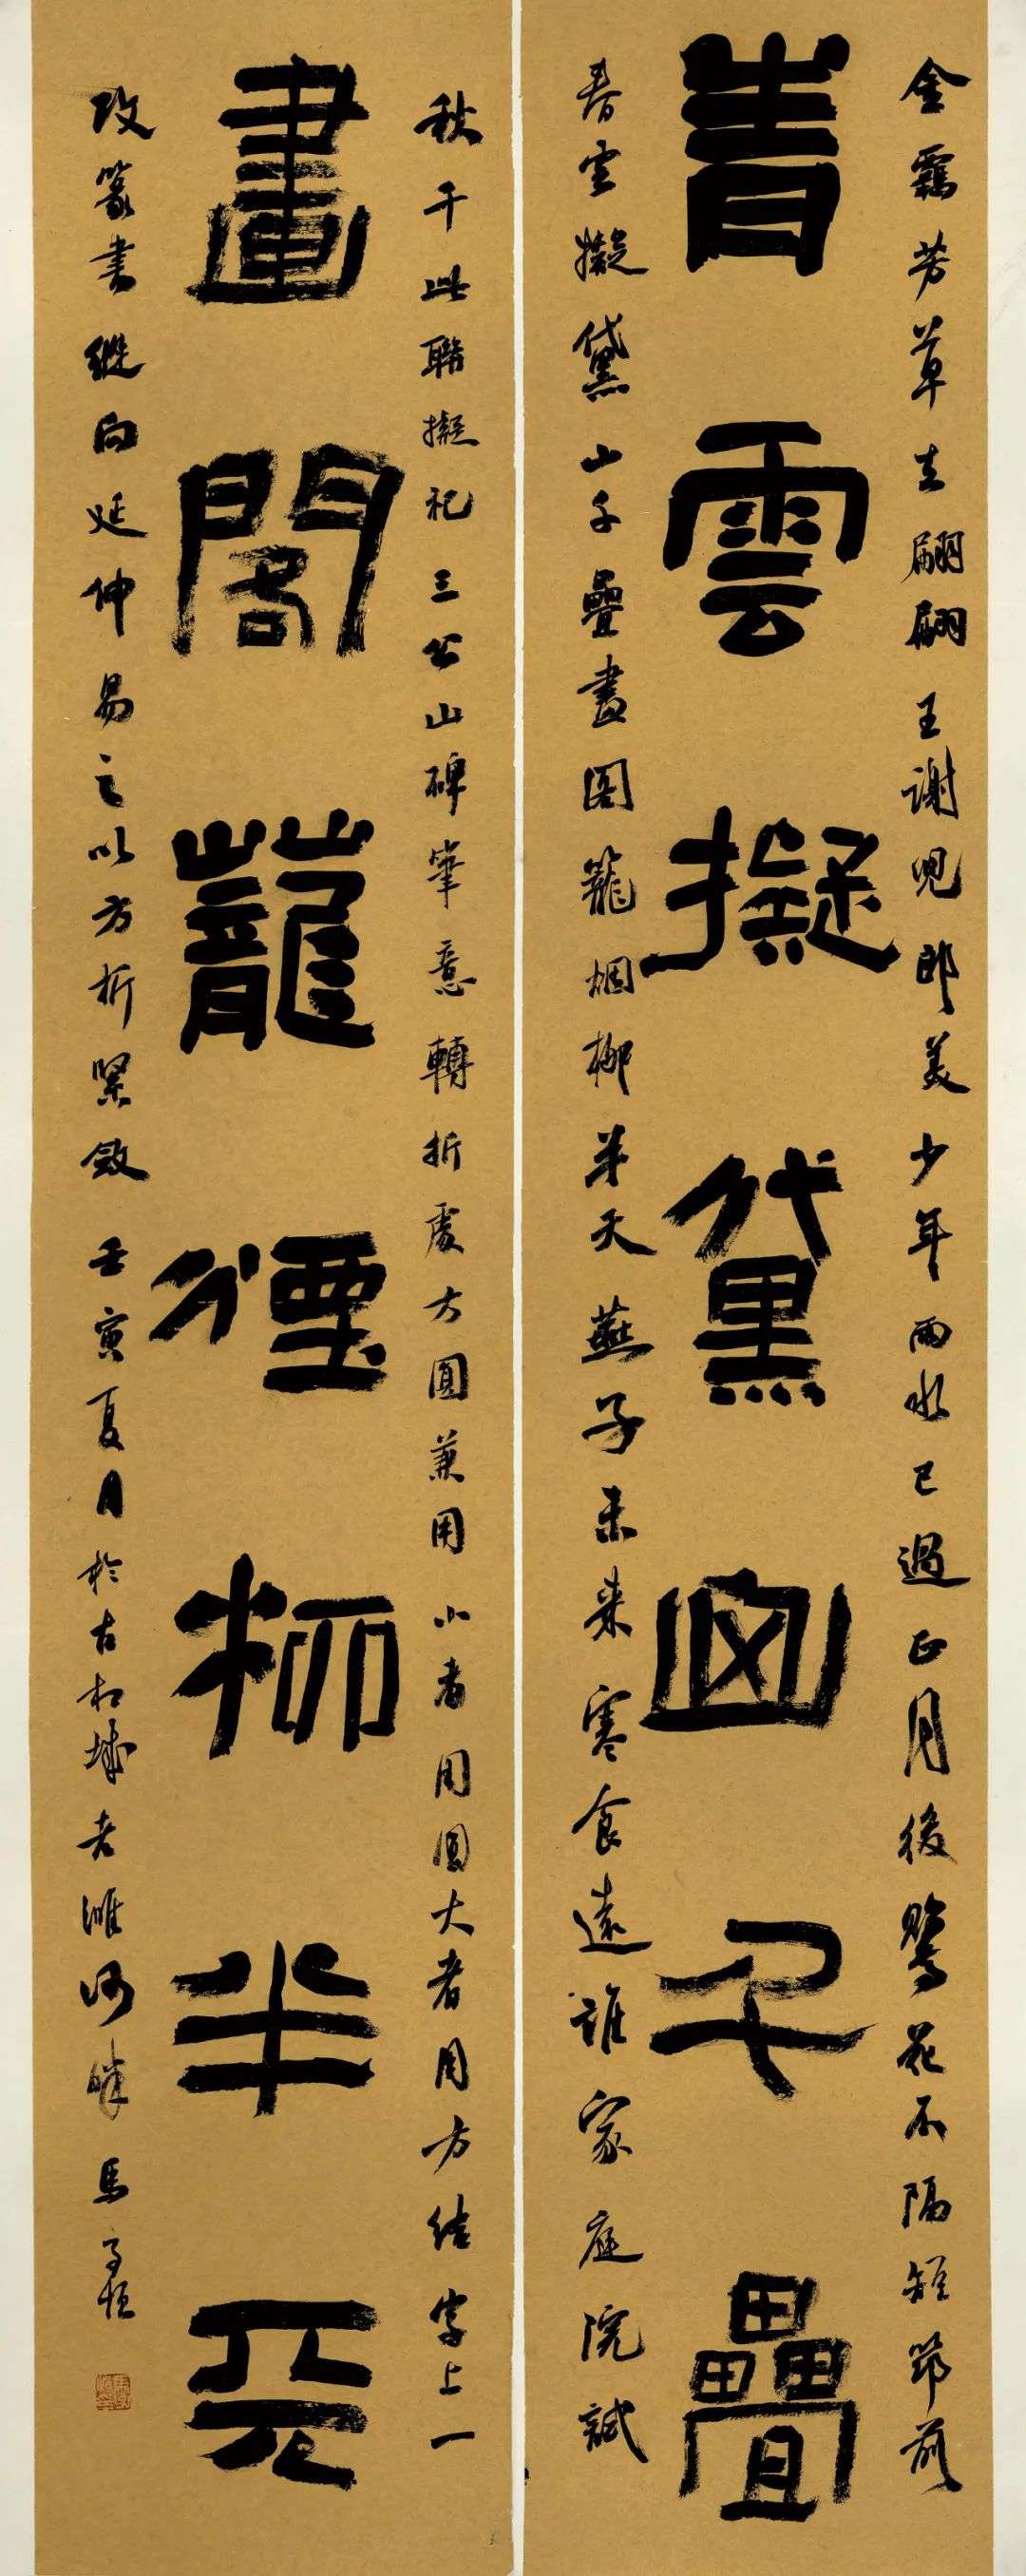 金羈芳草去翩翩王謝兒郎美少年雨水已過正月後鶯花不隔短筇前
春雲擬黛山千疊
春雲擬黛山千疊畫閣籠烟柳半天燕子未来寒食遠誰家庭院試
秋千此聯擬祀三公山碑筆意轉折處方圓兼用小者用圓大者用方结字上一
畫閣蘢煙柳半天
改篆書縱向延伸易之以方折緊斂壬寅夏月於古相城老濉河畔馬